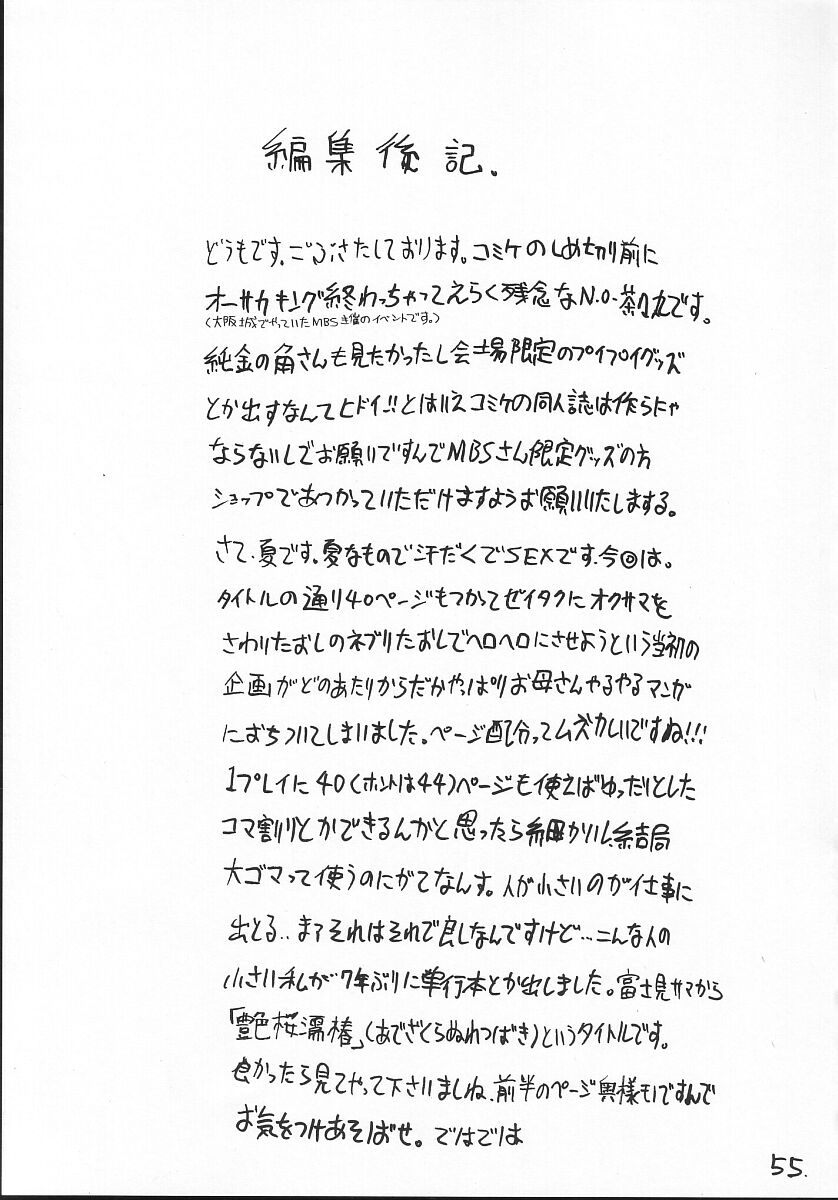 編集後記.
どうもです。ごぶさたしております。コミケのしめ切り前に
オーサカキング終わっちゃってえらく残念なN.O-茶々丸です。
(大阪城でやっていたMBS主催のイベントです。)
純金の角さんも見たかったし会場限定のプイプイグッズ
とか出すなんてヒドイ!!とはいえコミケの同人誌は作らにゃ
ならないしでお願いですんでMBSさん限定グッズの方
ショップであつかっていただけますようお願いいたしまする。
さて、夏です。夏なもので汗だくでSEXです、今回は。
タイトルの通り40ページもつかってゼイタクにオクサマを
さわりたおしのネブりたおしでヘロヘロにさせようという当初の
企画がどのあたりからだかやっぱりお母さんやるやるマンガ
におちついてしまいました。ページ配分ってムズカしいですね!!!
1プレイに40(ホントは44)ページも使えばゆったりとした
コマ割りとかができるんかと思ったら細かいし、結局
大ゴマって使うのにがてなんす。人が小さいのが仕事に
出とる..まァそれはそれで良しなんですけど…こんな人の
小さい私が7年ぶりに単行本とか出しました。富士見サマから
「艶桜濡椿」(あでざくらぬれつばき)というタイトルです。
良かったら見てやって下さいましね、前半のページ奥様モノですんで
お気をつけあそばせ。ではでは
55.